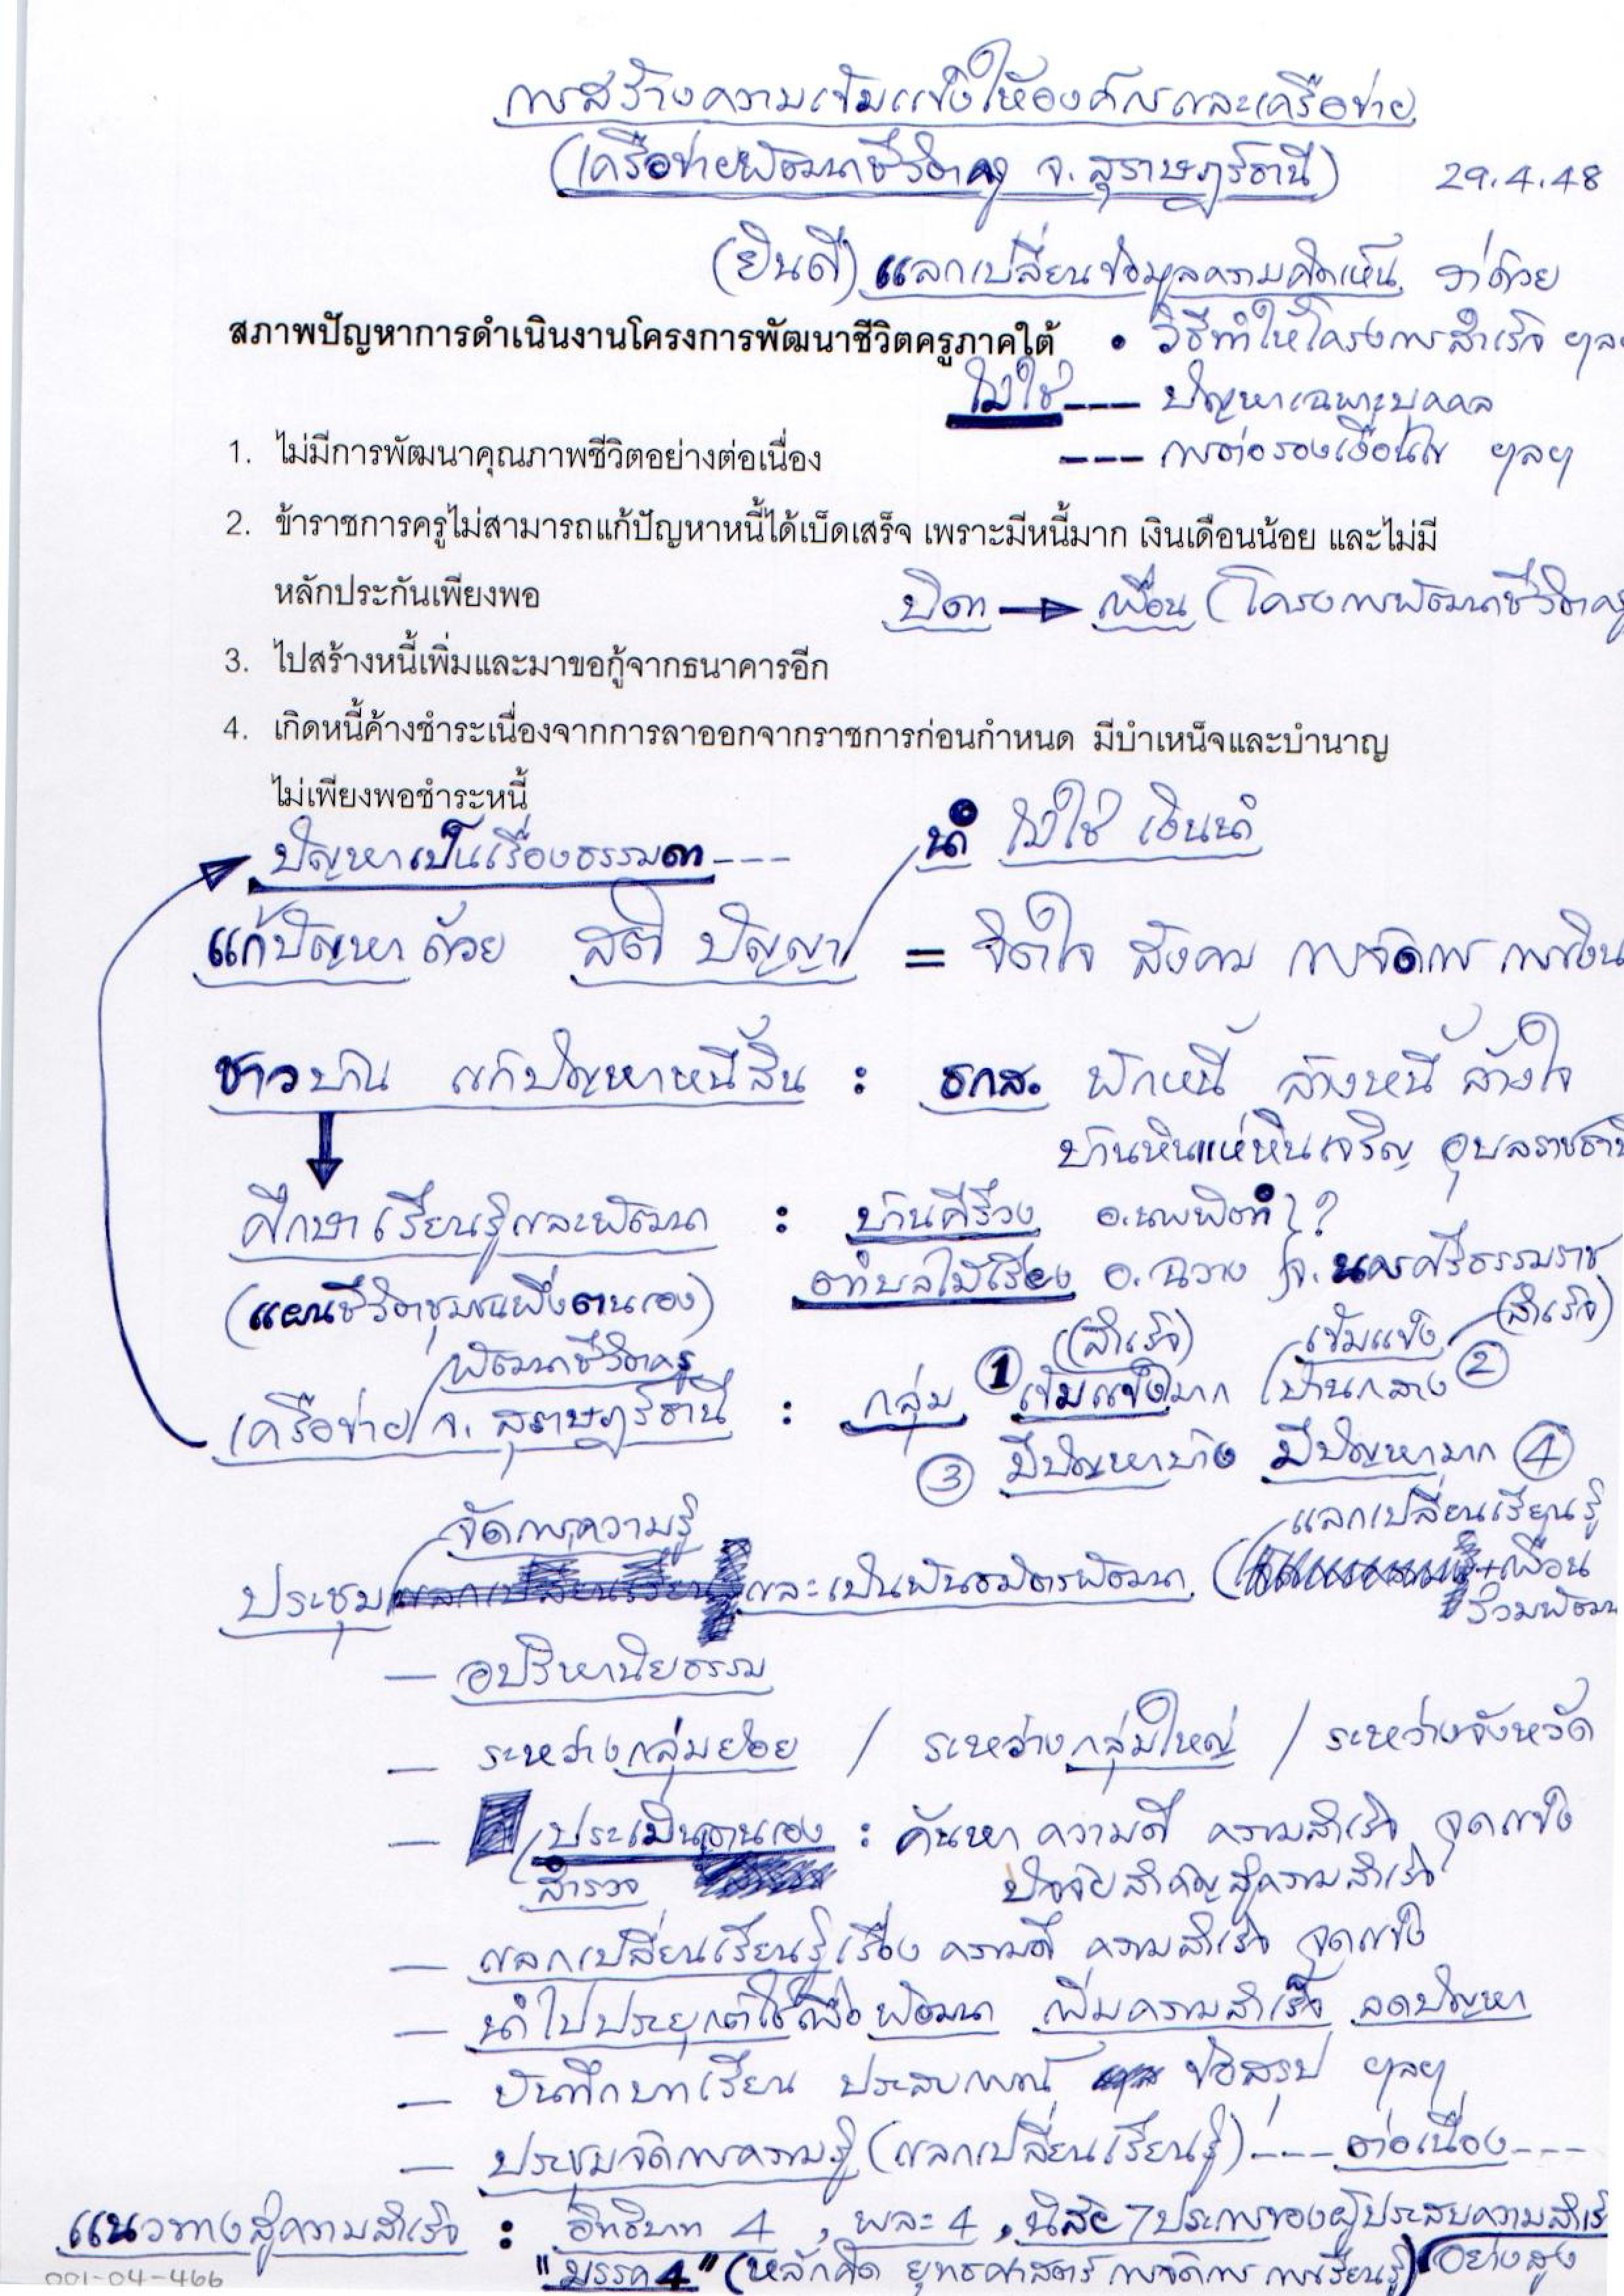 การสร้างความเข้มแข็งให้องค์กรและเครือข่าย
(เครือข่ายพัฒนาชีวิตครู จ. สุราษฎร์ธานี) 29.4.48
(ยินดี) แลกเปลี่ยนข้อมูลความคิดเห็น ว่าด้วย
สภาพปัญหาการดำเนินงานโครงการพัฒนาชีวิตครูภาคใต้ • วิธีทำให้โครงการสำเร็จ ฯลฯ
ไม่ใช่ --- ปัญหาเฉพาะบุคคล
1. ไม่มีการพัฒนาคุณภาพชีวิตอย่างต่อเนื่อง --- การต่อรองเงื่อนไข ฯลฯ
2. ข้าราชการครูไม่สามารถแก้ปัญหาหนี้ได้เบ็ดเสร็จ เพราะมีหนี้มาก เงินเดือนน้อย และไม่มี
หลักประกันเพียงพอ บิดา → เพื่อน (โครงการพัฒนาชีวิตครู
3. ไปสร้างหนี้เพิ่มและมาขอกู้จากธนาคารอีก
4. เกิดหนี้ค้างชำระเนื่องจากการลาออกจากราชการก่อนกำหนด มีบำเหน็จและบำนาญ
ไม่เพียงพอชำระหนี้
ปัญหาเป็นเรื่องธรรมดา --- นำ ไม่ใช่ เงินนำ
แก้ปัญหาด้วย สติ ปัญญา = จิตใจ สังคม การจัดการ การเงิน
ชาวบ้าน แก้ปัญหาหนี้สิน : ธกส. พักหนี้ ล้างหนี้ ล้างใจ
บ้านหินแห่หินเจริญ อุบลราชธานี
ศึกษา เรียนรู้และพัฒนา : บ้านคีรีวง อ.นบพิตำ ??
(แผนชีวิตชุมชนพึ่งตนเอง) ตำบลไม้เรียง อ.ฉวาง จ.นครศรีธรรมราช
(สำเร็จ) เข้มแข็ง (สำเร็จ)
พัฒนาชีวิตครู
เครือข่าย จ. สุราษฎร์ธานี : กลุ่ม ① เข้มแข็งมาก ปานกลาง ②
③ มีปัญหาบ้าง มีปัญหามาก ④
จัดการความรู้ แลกเปลี่ยนเรียนรู้
ประชุม แลกเปลี่ยนเรียนรู้ และเป็นพันธมิตรพัฒนา ( +เพื่อน
ร่วมพัฒนา
— อปริหานิยธรรม
— ระหว่างกลุ่มย่อย / ระหว่างกลุ่มใหญ่ / ระหว่างจังหวัด
— ประเมินตนเอง : ค้นหา ความดี ความสำเร็จ จุดแข็ง
สำรวจ ปัจจัยสำคัญสู่ความสำเร็จ
— แลกเปลี่ยนเรียนรู้เรื่อง ความดี ความสำเร็จ จุดแข็ง
— นำไปประยุกต์ใช้เพื่อ พัฒนา เพิ่มความสำเร็จ ลดปัญหา
— บันทึกบทเรียน ประสบการณ์ ข้อสรุป ฯลฯ
— ประชุมจัดการความรู้ (แลกเปลี่ยนเรียนรู้) --- ต่อเนื่อง ---
แนวทางสู่ความสำเร็จ : อิทธิบาท 4 , พละ 4 , นิสัย 7 ประการของผู้ประสบความสำเร็จ
"มรรค 4" (หลักคิด ยุทธศาสตร์ การจัดการ การเรียนรู้) อย่างสูง
001-04-466